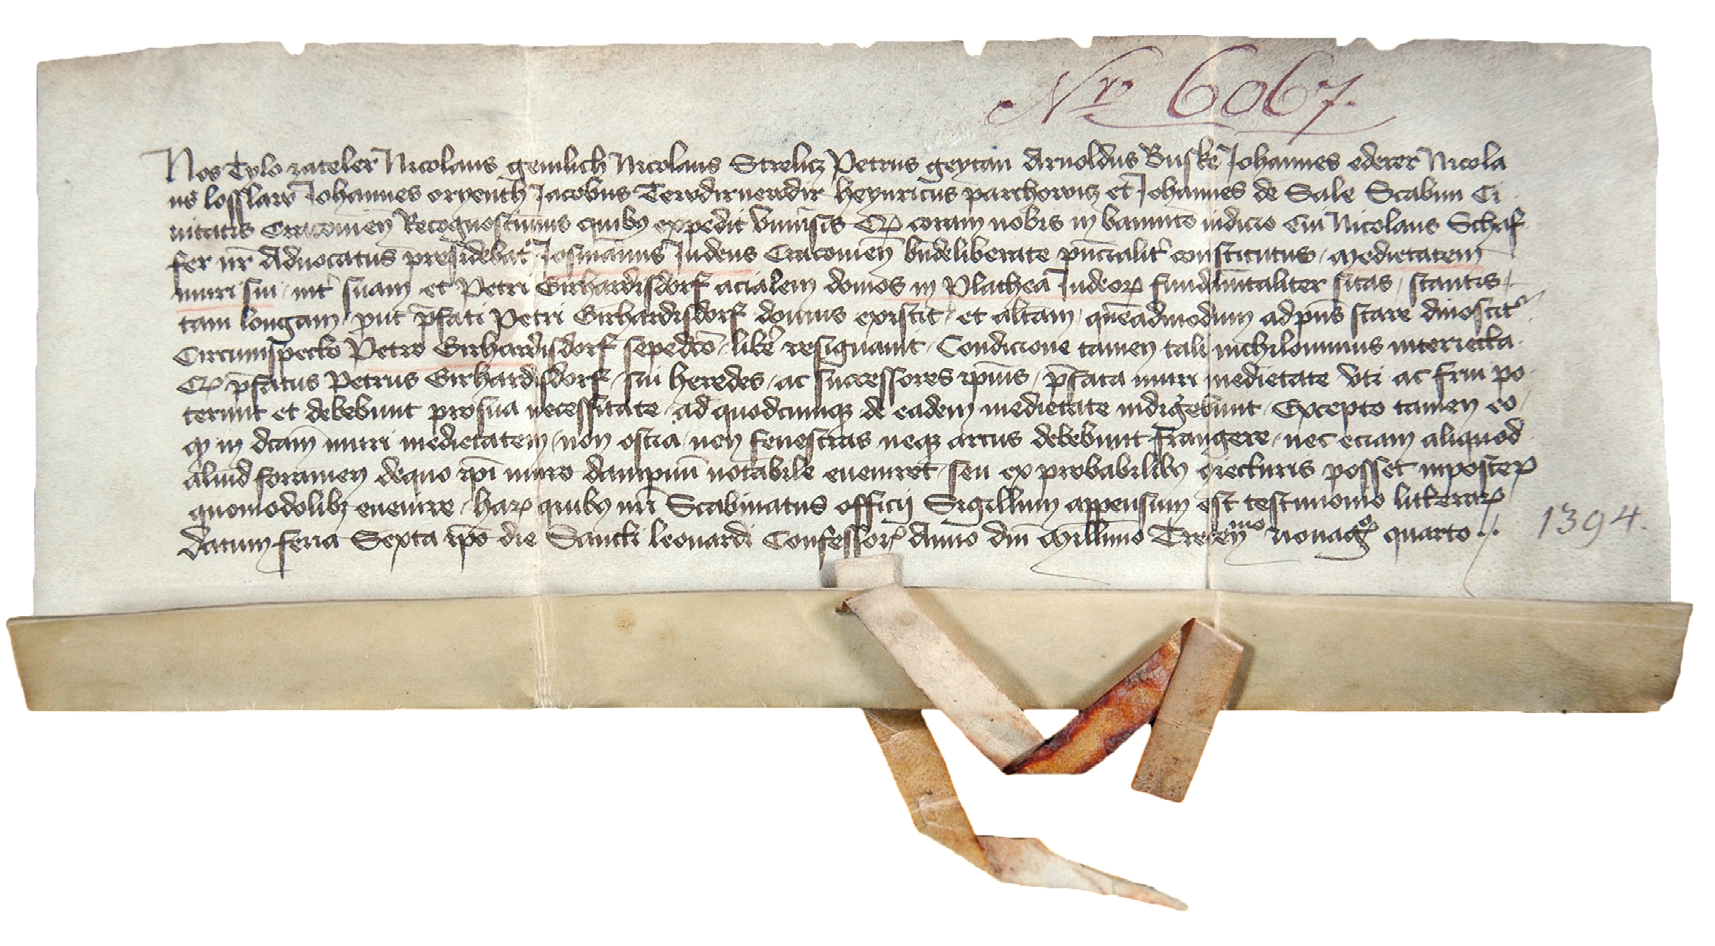 Nr̃o 6067.
Nos Tylo zateler Nicolaus gemlich Nicolaus Strelicz Petrus geytan Arnoldus Buske Johannes ederer Nicola
us Johannes Jacobus heynricus parchowicz et Johannes de Sale Scabini Ci
uitatis Cracouien̄ Recognoscimus quibꝫ expedit vniu̕sis Qꝫ coram nobis in bannito iudicio Cui Nicolaus Schaf
fer nr̄ Aduocatus presidebat Josmannus Judeus Cracouien̄ bn̄deliberate pn̄cialit̕ constitutus medietatem
muri sui int̕ suam et Petri Girhardisdorf acialem domos in Plathea Judeoꝝ fundamentaliter sitas stantis
tam longam put p̄fati Petri Girhardisdorf domus existit et altam quēadmodum adpn̄s stare dinoscit̕
Circumspecto Petro Girhardisdorf sepedc̄o libe̕ resignauit Condicione tamen tali nichilominus interiecta
Qꝫ p̄fatus Petrus Girhardisdorf sui heredes ac successores ip̄ius p̄fata muri medietate vti ac frui po
terunt et debebunt prosua necessitate ad quodcumqꝫ de eadem medietate indigebunt Excepto tamen eo
qꝫ in dc̄am muri medietatem non ostia non fenestras neqꝫ arcus debebunt frangere nec eciam aliquod
aliud foramen dequo ip̄i muro dampnū notabile eueniret seu ex probabilibꝫ coniecturis posset inposteꝝ
quomodolibꝫ euenire haꝝ quibꝫ nr̄i Scabinatus officij Sigillum appensum est testimonio litteraꝝ
datum feria Sexta ip̄o die Sancti leonardi Confessoꝝ Anno dn̄i Millīmo Trecen̄mo nonag̊ quarto
1394.